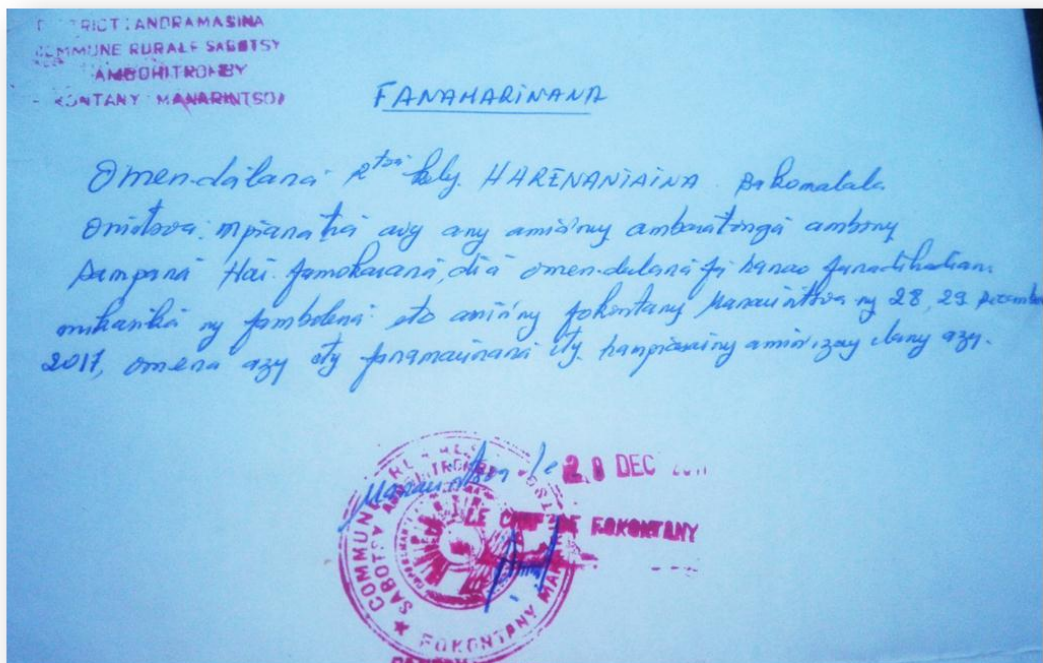 DISTRICT : ANDRAMASINA
COMMUNE RURALE SABOTSY
AMBOHITROMBY
FOKONTANY MANARINTSOA
FANAMARINANA
Omen-dalana Rtoa kely HARENANIAINA
mpianatra avy any amin'ny ambaratonga ambony
Sampana Hai-famokarana, dia omen-dalana fa hanao fanadihadiana
mikasika ny fambolena eto amin'ny fokontany Manarintsoa ny 28, 29 Decembre
2017, omena azy ity fanamarinana ity hampiasainy amin'izay ilany azy.
Manarintsoa le 28 DEC
LE CHEF DE FOKONTANY
COMMUNE RURALE
SABOTSY AMBOHITROMBY
FOKONTANY